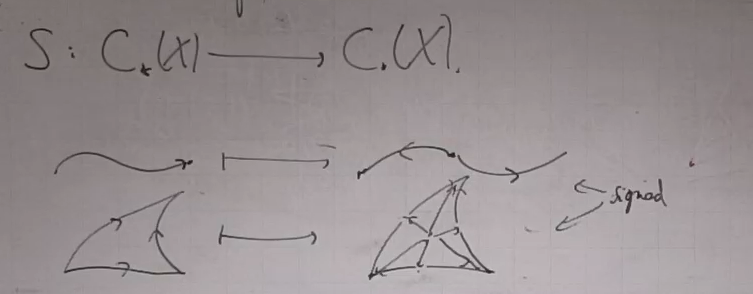 S: C.(X) ⟶ C.(X).
signed